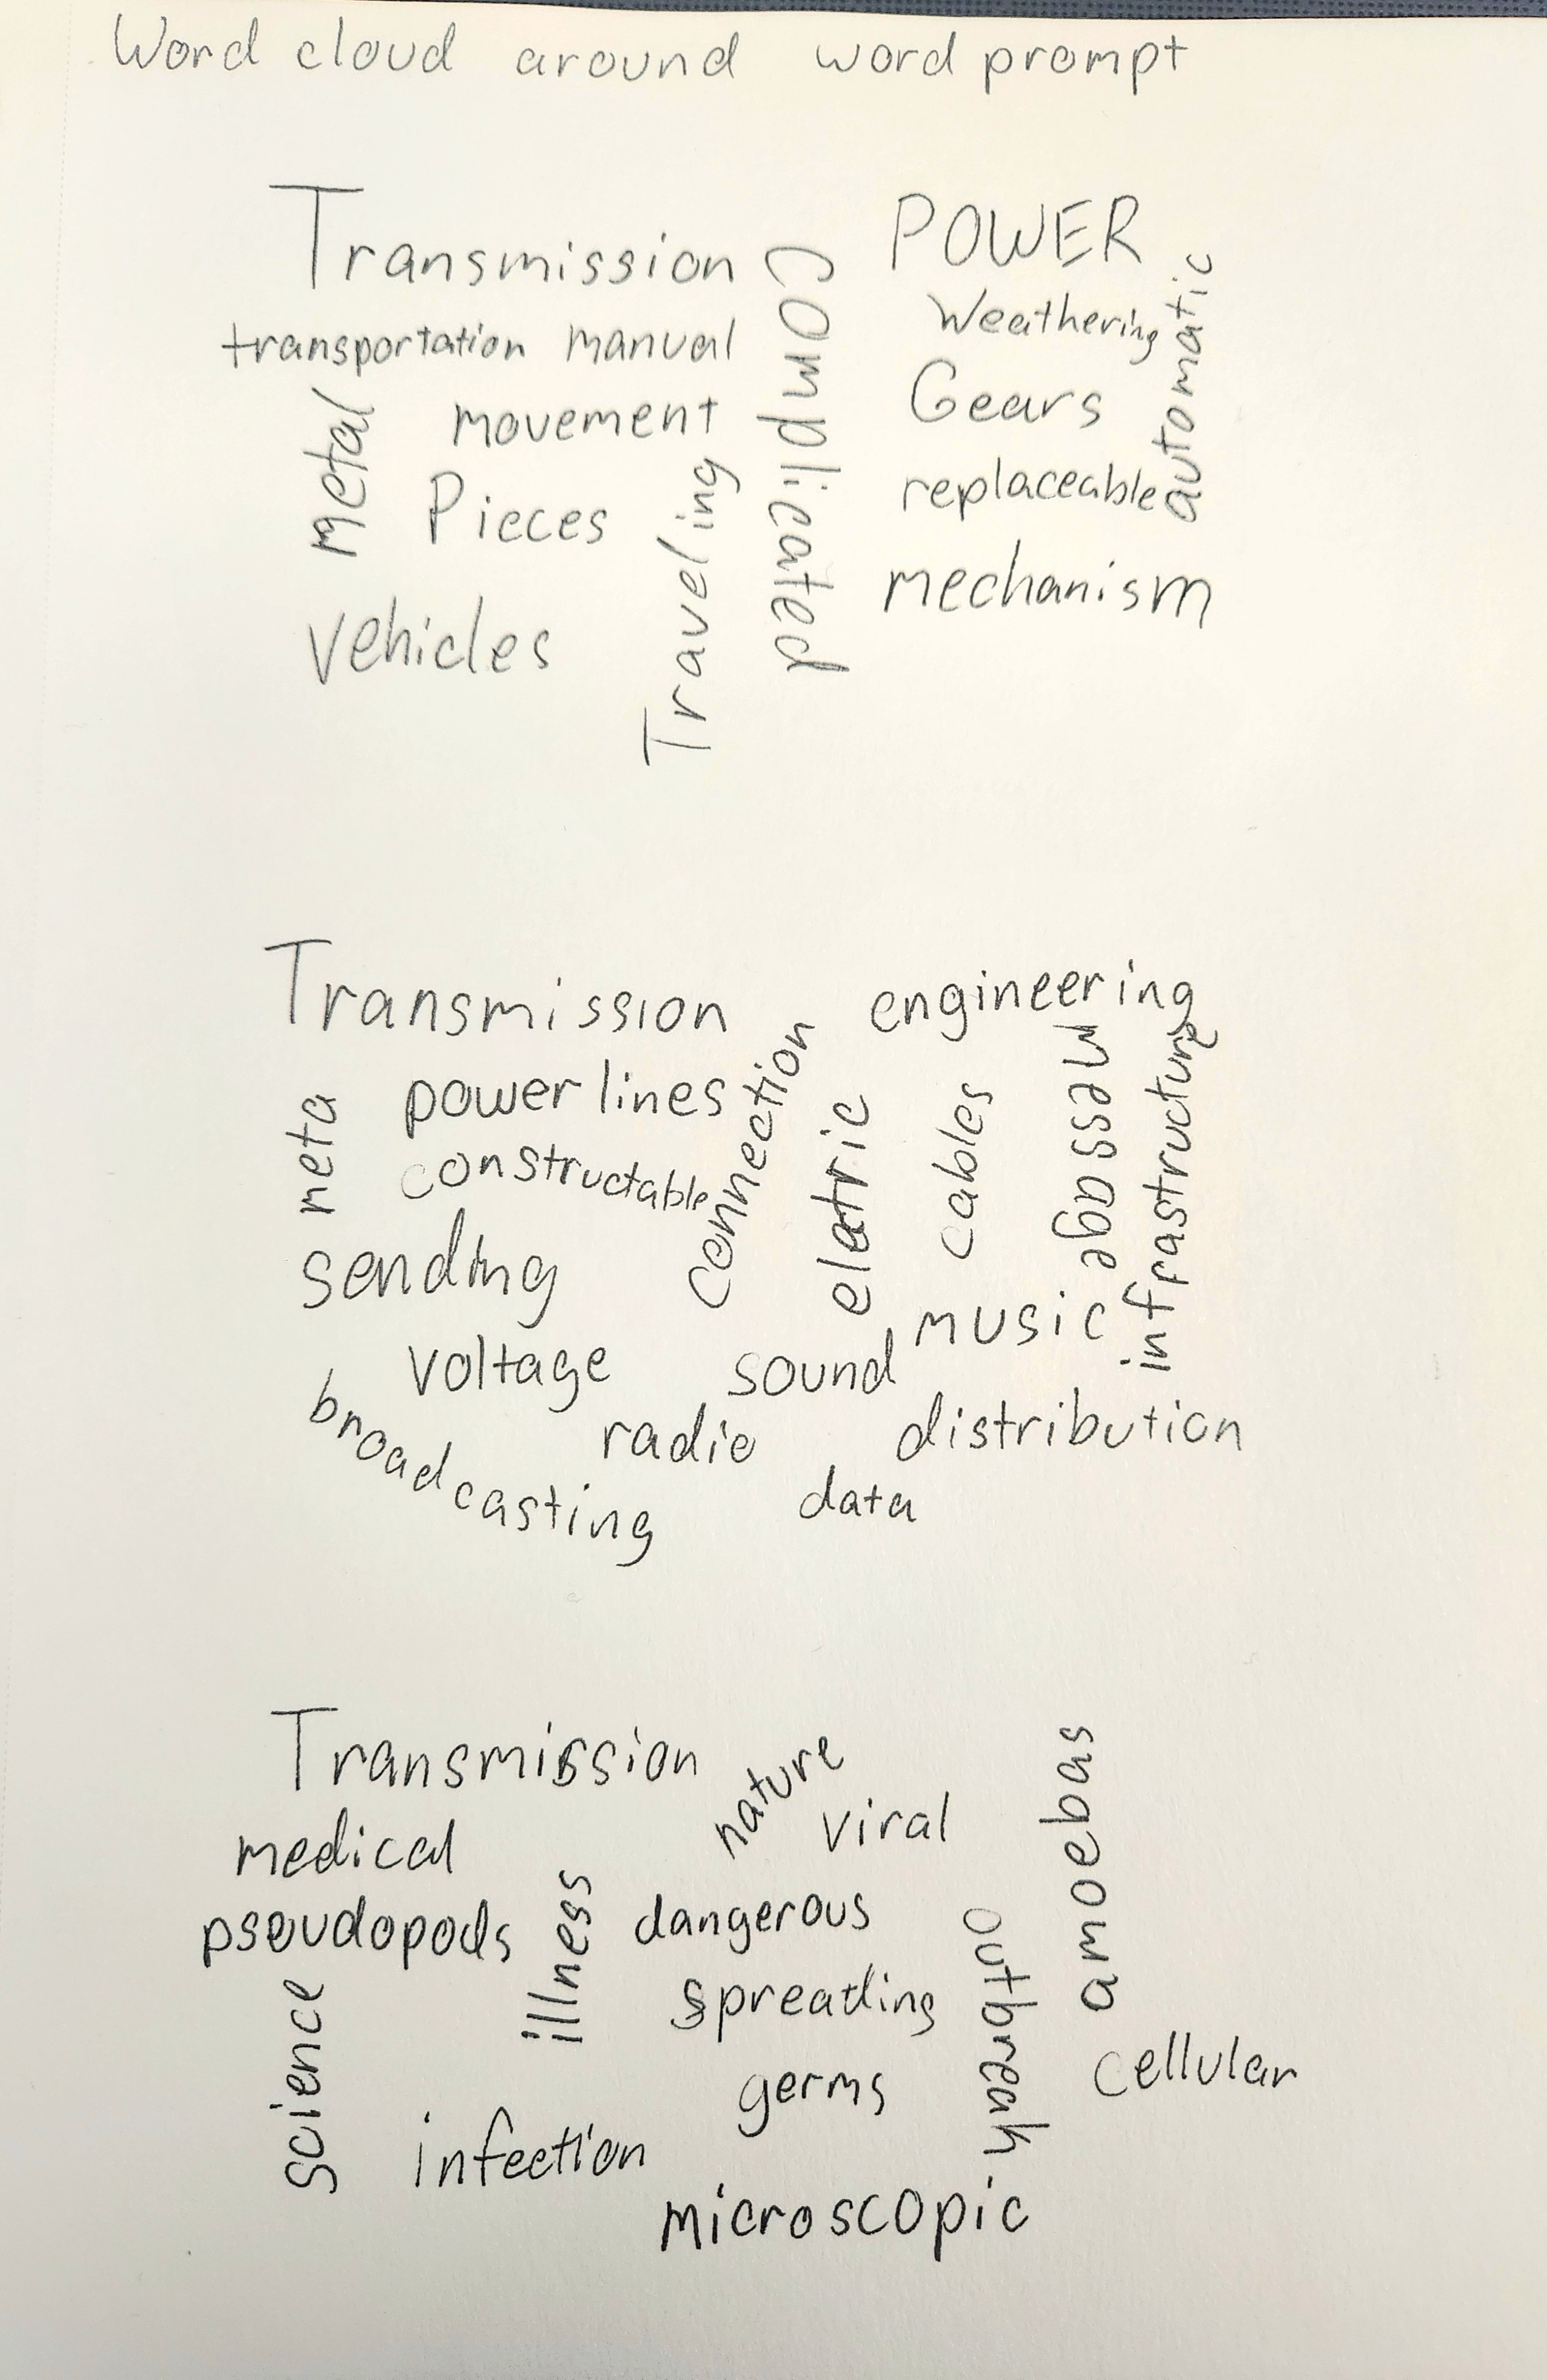 Word cloud around word prompt
Transmission
POWER
Complicated
Weathering
automatic
transportation manual
Gears
metal
movement
replaceable
Pieces
Traveling
mechanism
Vehicles
Transmission
engineering
connection
message
infrastructure
power lines
meta
constructable
eletric
cables
sending
music
voltage
sound
broadcasting
radio
distribution
data
Transmission
nature
amoebas
viral
medical
pseudopods
illness
dangerous
outbreak
spreading
science
germs
cellular
infection
microscopic